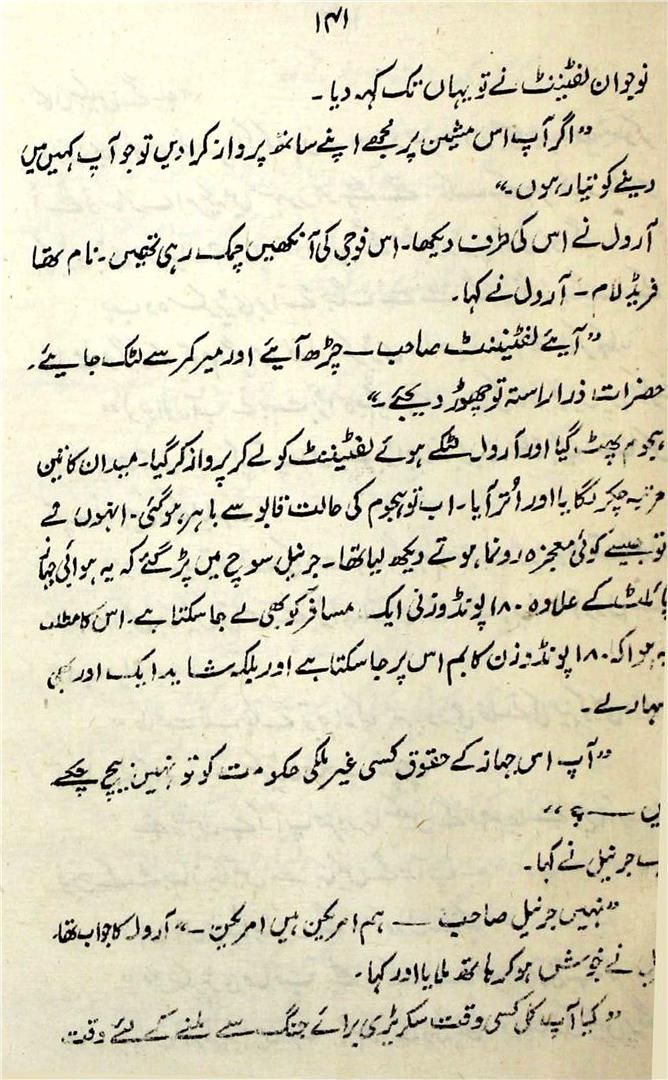 ۱۴۱
نوجوان لفٹیننٹ نے تو یہاں تک کہہ دیا۔
”اگر آپ اس مشین پر مجھے اپنے ساتھ پرواز کرا دیں تو جو آپ کہیں میں
دینے کو تیار ہوں۔“
آرول نے اس کی طرف دیکھا۔ اس فوجی کی آنکھیں چمک رہی تھیں۔ نام تھا
فریڈ لام۔ آرول نے کہا۔
”آیئے لفٹیننٹ صاحب — چڑھ آیئے اور میر کمر سے لٹک جایئے۔
حضرات ذرا راستہ تو چھوڑ دیجئے۔“
ہجوم پھٹ گیا اور آرول لٹکے ہوئے لفٹیننٹ کو لے کر پرواز کر گیا۔ میدان کا تین
مرتبہ چکر لگایا اور اُتر آیا۔ اب تو ہجوم کی حالت قابو سے باہر ہو گئی۔ انہوں نے
تو جیسے کوئی معجزہ رونما ہوتے دیکھ لیا تھا۔ جرنیل سوچ میں پڑ گئے کہ یہ ہوائی جہاز
پائلٹ کے علاوہ ۱۸۰ پونڈ وزنی ایک مسافر کو بھی لے جا سکتا ہے۔ اس کا مطلب
یہ ہوا کہ ۱۸۰ پونڈ وزن کا بم اس پر جا سکتا ہے اور بلکہ شاید ایک اور بھی
سہار لے۔
”آپ اس جہاز کے حقوق کسی غیر ملکی حکومت کو تو نہیں بیچ چکے
یں — ؟“
ب جرنیل نے کہا۔
”نہیں جرنیل صاحب — ہم امریکن ہیں امریکن۔“ آرول کا جواب تھا۔
ل نے خوش ہو کر ہاتھ ملایا اور کہا۔
”کیا آپ کل کسی وقت سکریٹری برائے جنگ سے ملنے کے لئے وقت